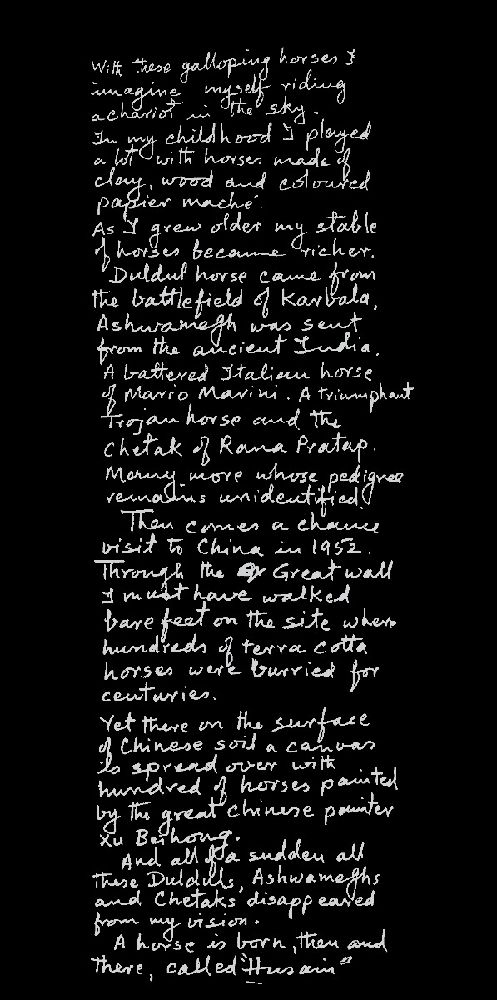 With these galloping horses I
imagine myself riding
a chariot in the sky.
In my childhood I played
a lot with horses made of
clay, wood and coloured
papier maché
As I grew older my stable
of horses became richer.
Duldul horse came from
the battlefield of Karbala,
Ashwamegh was sent
from the ancient India.
A battered Italian horse
of Mario Marini. A triumphant
Trojan horse and the
Chetak of Rana Pratap.
Many more whose pedigree
remains unidentified.
Then comes a chance
visit to China in 1952.
Through the Great wall
I must have walked
bare feet on the site where
hundreds of terra cotta
horses were burried for
centuries.
Yet there on the surface
of Chinese soil a canvas
is spread over with
hundred of horses painted
by the great Chinese painter
Xu Beihong.
And all of a sudden all
these Dulduls, Ashwameghs
and Chetaks disappeared
from my vision.
A horse is born, then and
there, called "Husain"